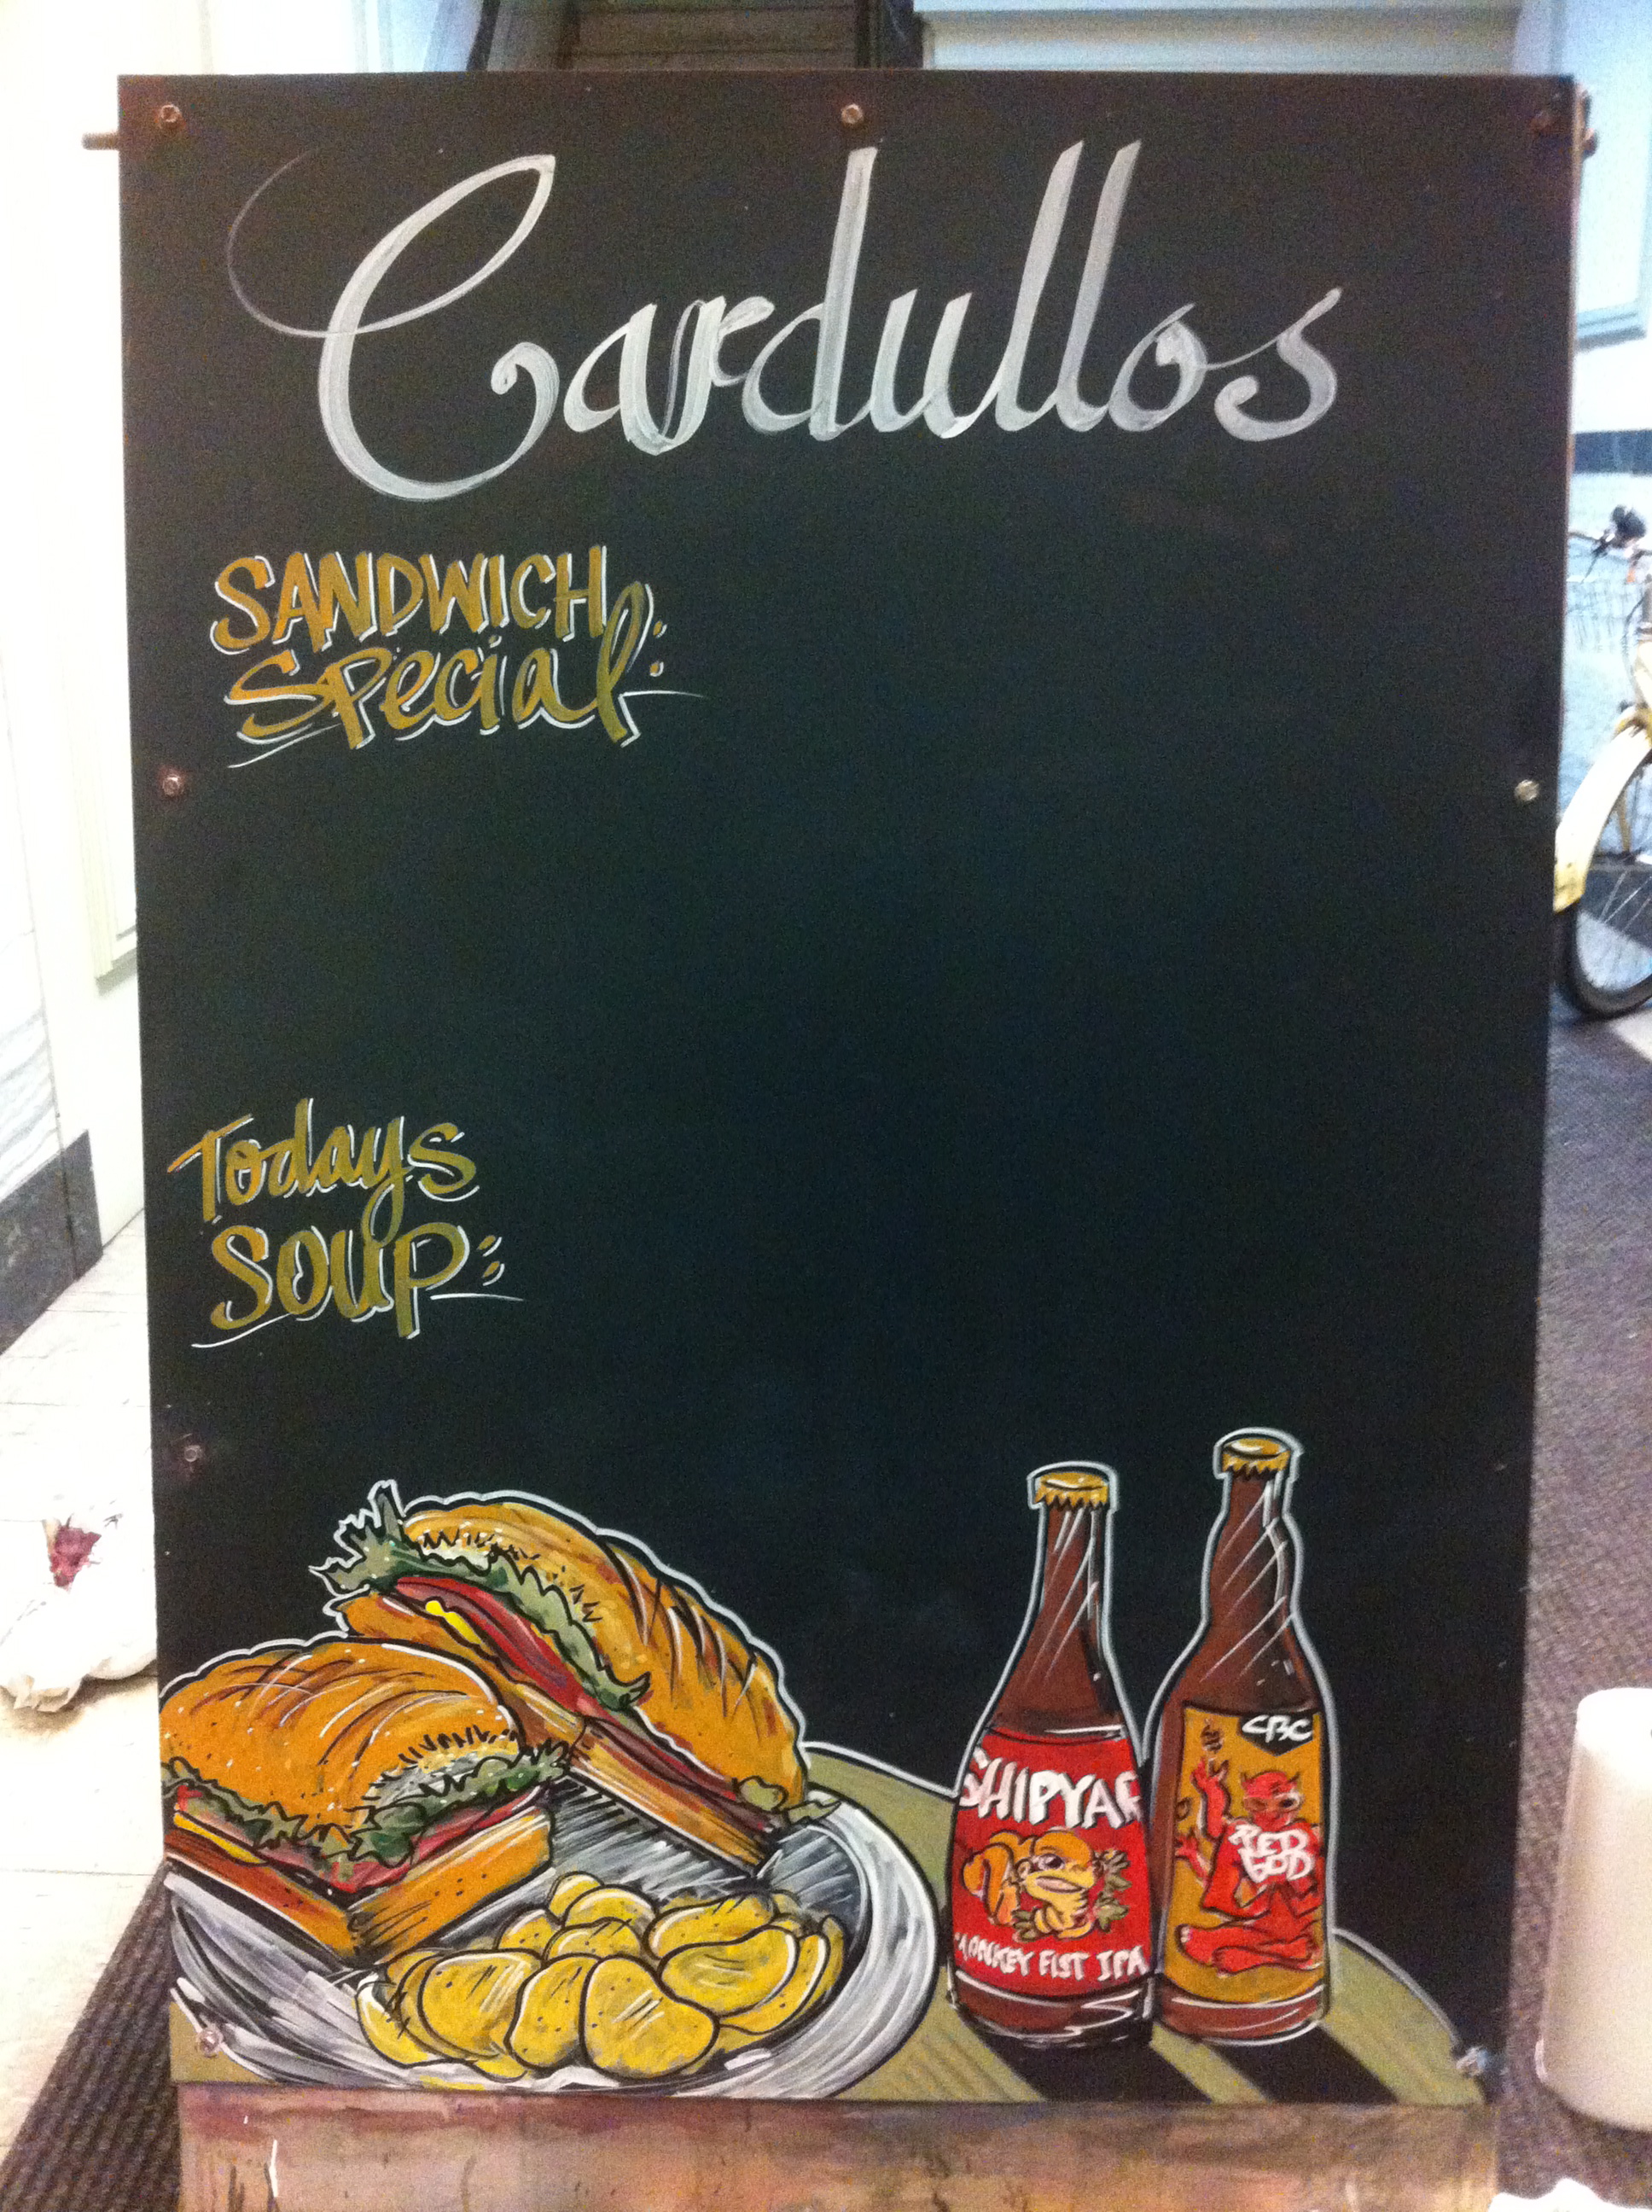 Cardullos
SANDWICH
Special:
Todays
SOUP:
SHIPYAR
MONKEY FIST IPA
CBC
RED
GOD